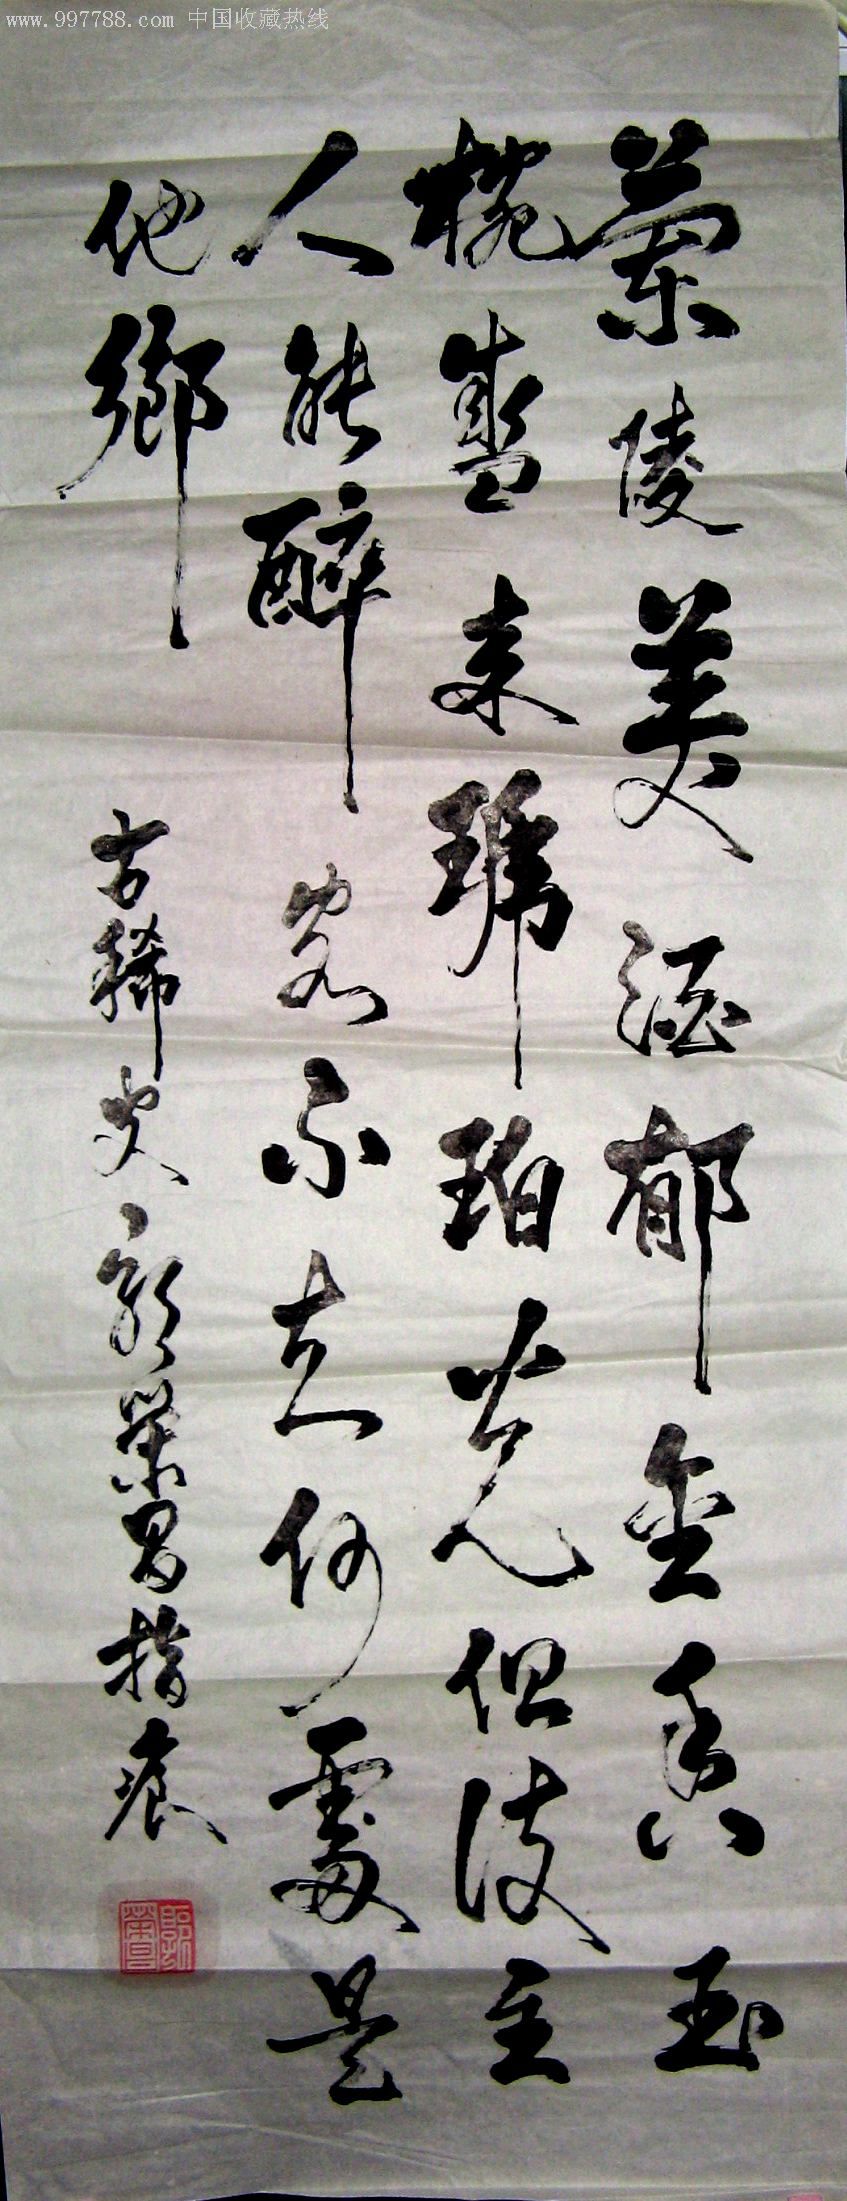 www.997788.com 中国收藏热线
蘭陵美酒郁金香玉
椀盛来琥珀光但使主
人能醉客不知何處是
他鄉
古稀叟郭榮昌指痕